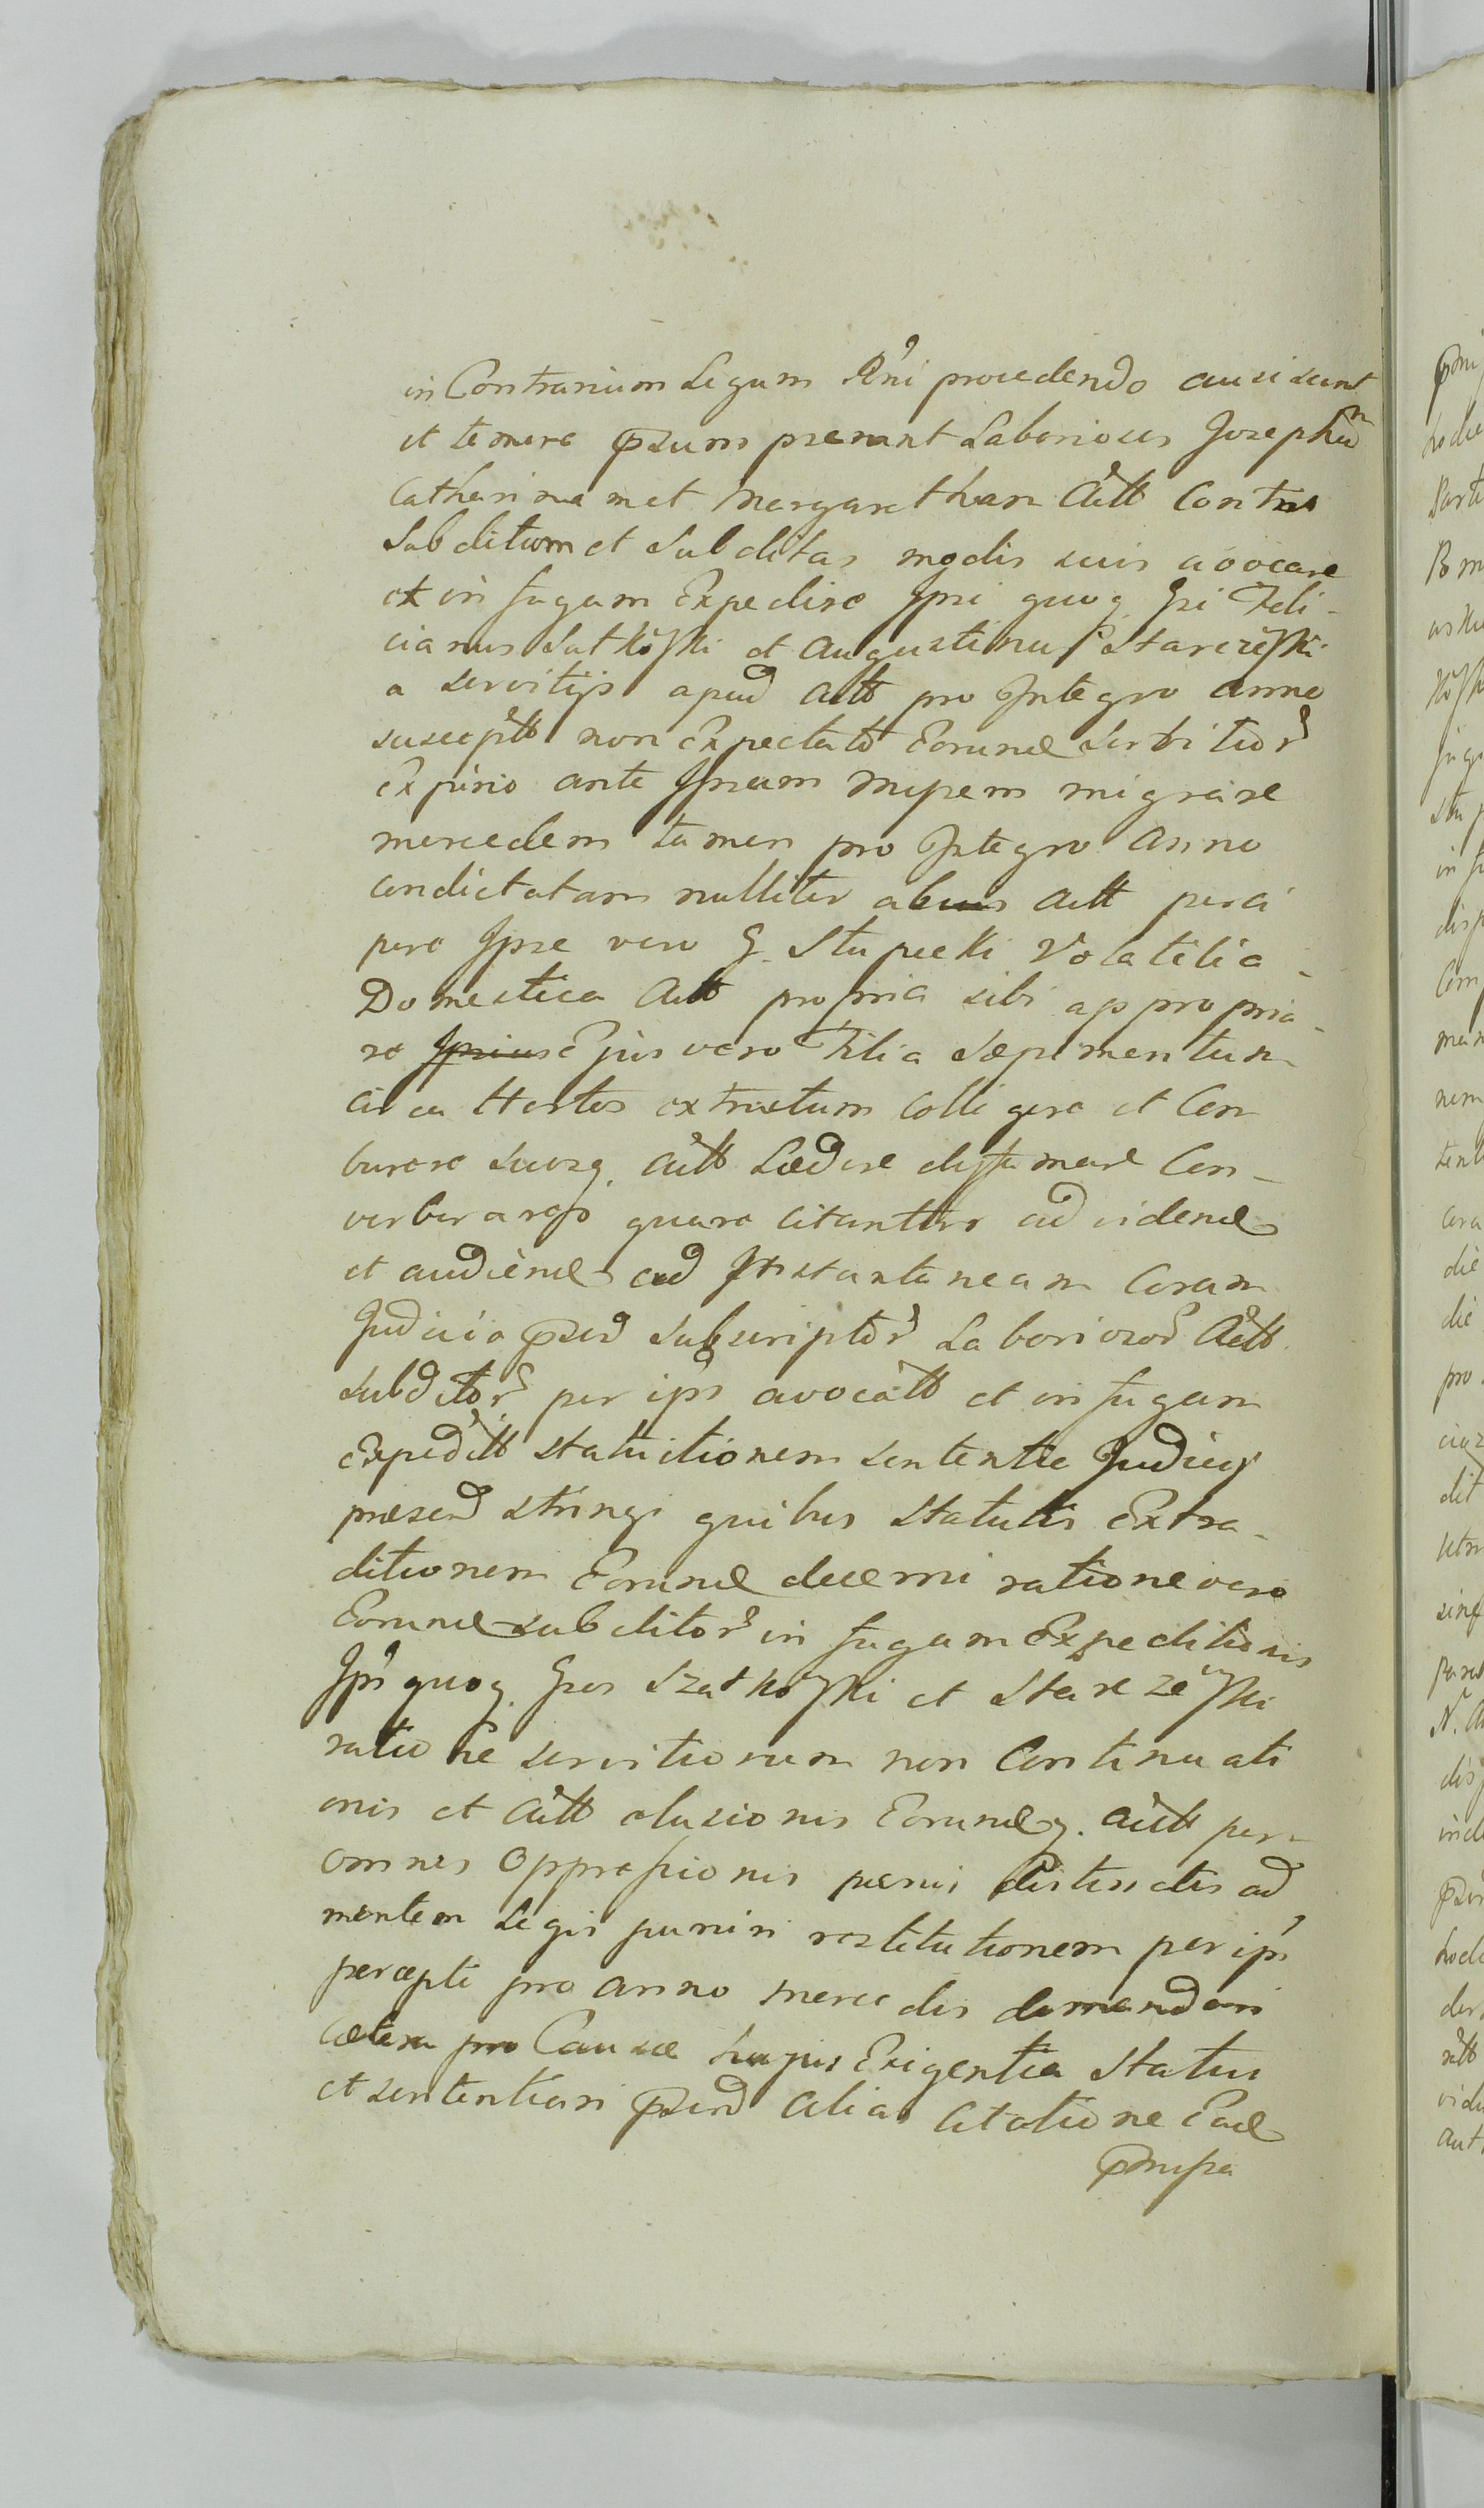 in Contrarium Legum Rni procedendo ausi sunt
et temere prsum pserunt Laboriosos Josephum
Catharinam et Margaretham Actt Contra
Subditum et Subditas modis suis avocare
et in fugam Expedire Ipsi quoq Gsi Feli-
cianus Satkoski et Augustinus Starczeski
a servitijs apud Actt pro Integro anno
susceptt non Expectato Eorund Servitior
Expirio ante Ipsum mensem migrare
mercedem tamen pro Integro Anno
condictatam nulliter ab Actt perci
pere Ipse vero G. Stupecki Volatilia
Domestica Actt propria sibi appropria-
re Ejus vero Filia Sepimentum
circa Hortos extructum Colligere et Com
burere suosq. Actt Lædere diffamare Con-
verberare quare citantur ad vidend
et audiend ad Instantaneam Coram
Judicio prsenti Subscriptor Laboriosor Actt
Subditor per ipsos avocatt et in fugam
Expeditt statuitionem sententia Judicij
præsend stringi quibus Statutis Extra-
ditionem Eorund decerni ratione vero
Eorund subditor in fugam Expeditionis
Ips quoq. Gsos Szatkoski et Starczeski
ratione servitiorum non Continuati
onis et Actt elusionis Eorundq. Actt per
omnes Oppressionis pænis distinctis ad
mentem Legis puniri restitutionem per ips
percepti pro anno mercedis demandari
Cætera pro Causæ hujus Exigentia Statui
et sententiari prsend alias Citatione Ead